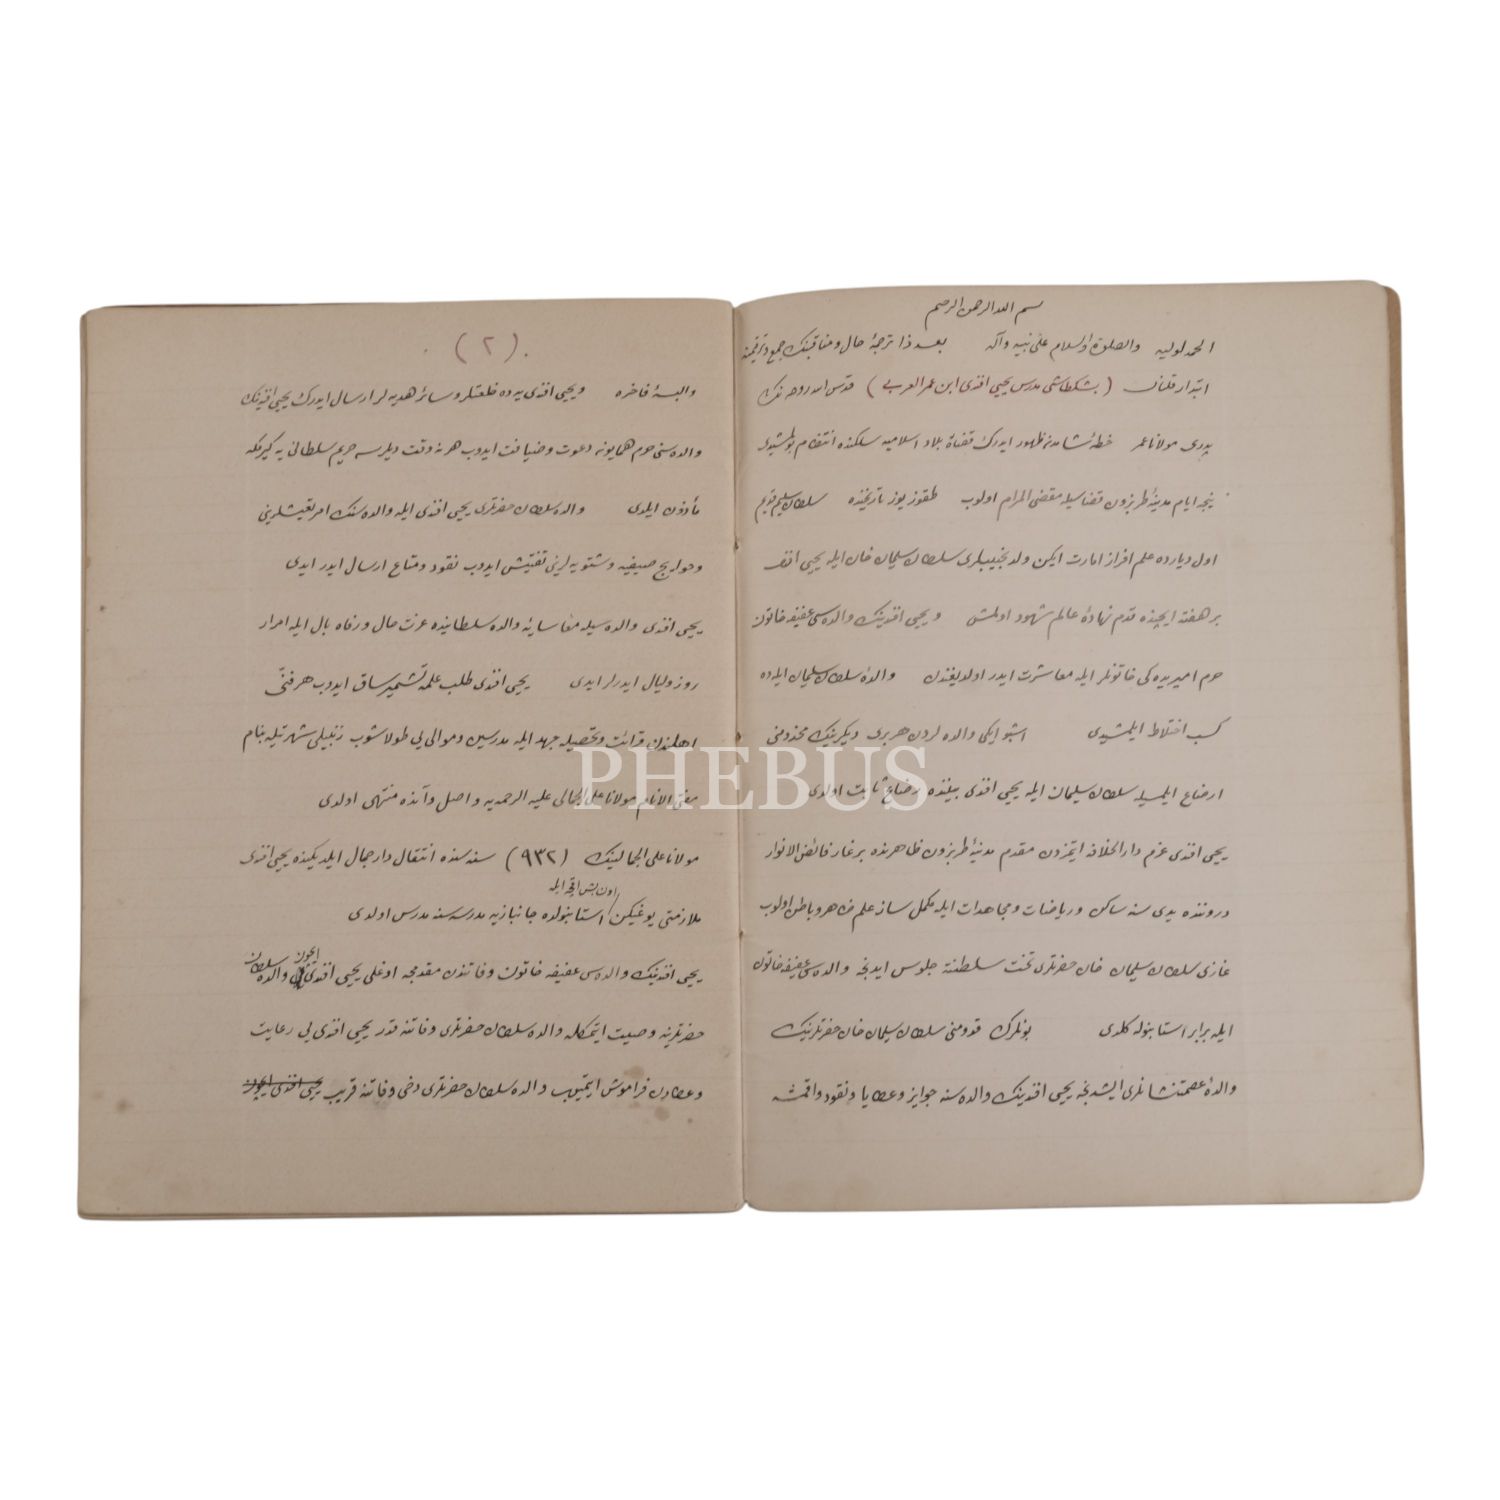 بسم الله الرحمن الرحيم
الحمد لوليه والصلوة والسلام على نبيه وآله بعد ذا ترجمۀ حال ومناقبنك جمع وترقيمنه
ابتدار قلنان (بشكطاشى مدرس يحيى افندى ابن عمر العربى) قدس الله روحه نك
پدرى مولانا عمر خطۀ شامدن ظهور ايدرك قضاة بلاد اسلاميه سلكنده انتظام بولمشيدى
نيجه ايام مدينۀ طربزون قضاسيله مقضى المرام اولوب طقوز يوز تاريخنده سلطان سليم قديم
اول ديارده علم افراز امارت ايكن ولد نجيبلرى سلطان سليمان خان ايله يحيى افندى
بر هفته ايچنده قدم نهادۀ عالم شهود اولمش ويحيى افندينك والده سى عفيفه خاتون
حرم اميريده كى خاتونلر ايله معاشرت ايدر اولديغندن والدۀ سلطان سليمان ايله ده
كسب اختلاط ايلمشيدى اشبو ايكى والده لردن هربرى ديكرينك مخدومنى
ارضاع ايلمسيله سلطان سليمان ايله يحيى افندى بيننده رضاع ثابت اولدى
يحيى افندى عزم دار الخلافه ايتمزدن مقدم مدينۀ طربزون ظاهرنده بر غار فائض الانوار
دروننده يدى سنه ساكن ورياضات ومجاهدات ايله مكمل ساز علم ظاهر وباطن اولوب
غازى سلطان سليمان خان حضرتلرى تخت سلطنته جلوس ايدنجه والده سى عفيفه خاتون
ايله برابر استانبوله كلدى بونلرك قدومنى سلطان سليمان خان حضرتلرينك
والدۀ عصمتنشانلرى ايشيدنجه يحيى افندينك والده سنه جوايز وعطايا ونقود واقمشه
(٢)
والبسۀ فاخره ويحيى افندى يه ده خلعتلر وسائر هديه لر ارسال ايدرك يحيى افندينك
والده سنى حرم همايونه دعوت وضيافت ايدوب هر نه وقت ديلرسه حريم سلطانى يه كيرمكه
مأذون ايلدى والده سلطان حضرتلرى يحيى افندى ايله والده سنك امر تعيشلرينى
وحوايج صيفيه وشتويه لرينى تفتيش ايدوب نقود ومتاع ارسال ايدر ايدى
يحيى افندى والده سيله معا سايۀ والده سلطانيده عزت حال ورفاه بال ايله امرار
روز وليال ايدرلر ايدى يحيى افندى طلب علمه تشمير ساق ايدوب هر فنى
اهلندن قرائت وتحصيله جهد ايله مدرسين وموالى يى طولاشوب زنبيلى شهرتيله بنام
مفتى الانام مولانا على الجمالى عليه الرحمه يه واصل وآنده منتهى اولدى
مولانا على الجمالينك (٩٣٢) سنه سنده انتقال دار جمال ايلديكنده يحيى افندى
ملازمتى يوغيكن اون بش اقچه ايله استانبولده جانبازيه مدرسه سنه مدرس اولدى
يحيى افندينك والده سى عفيفه خاتون وفاتندن مقدمجه اوغلى يحيى افندى ايچون والده سلطان
حضرتلرينه وصيت ايتمكله والده سلطان حضرتلرى وفاتنه قدر يحيى افندى يى رعايت
وعطادن فراموش ايتميوب والده سلطان حضرتلرى دخى وفاتنه قريب يحيى افندى ايچون
PHEBUS